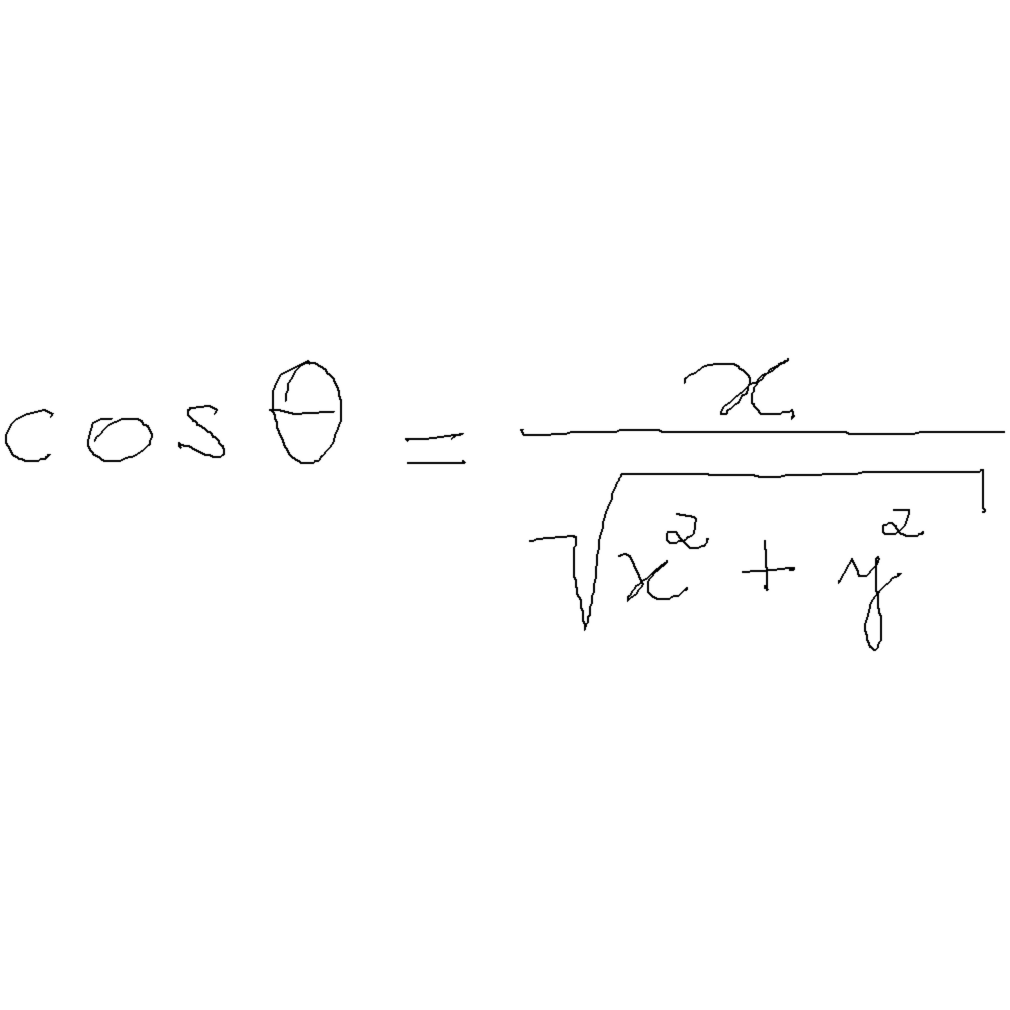 \cos \theta = \frac{x}{\sqrt{x^2 + y^2}}